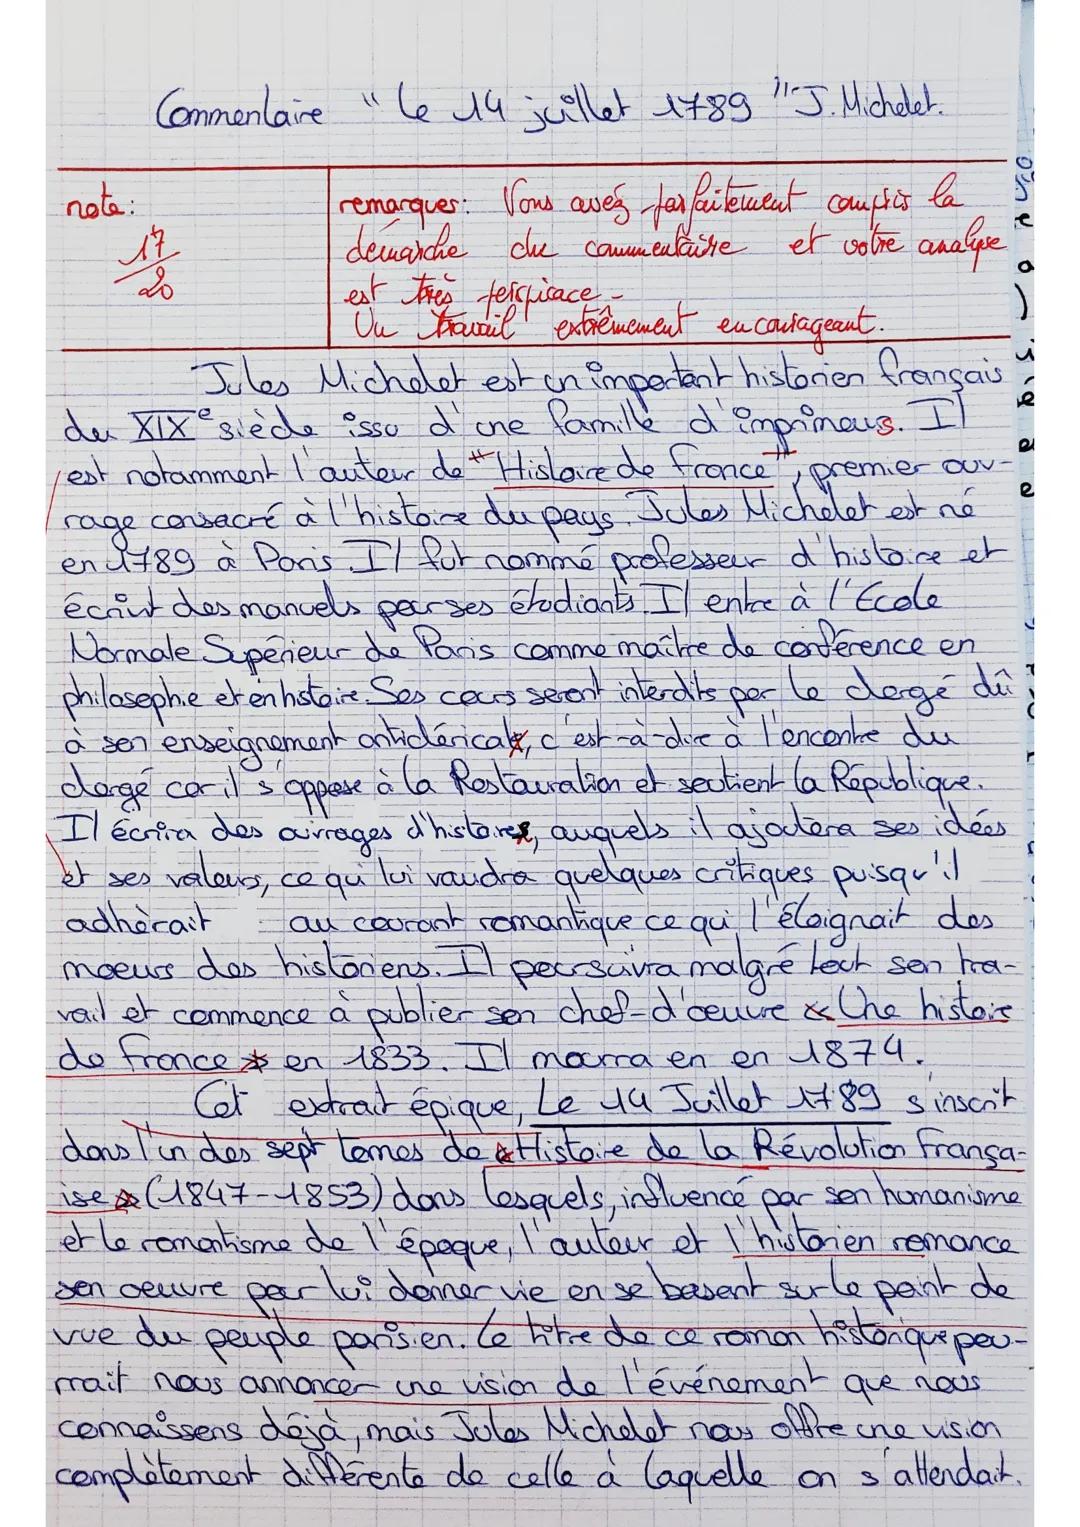 Commentaire " Le 14 juillet 1789 " J. Michelet.
note:
17/20
remarques: Vous avez parfaitement compris la
démarche du commentaire et votre analyse
est très perspicace.
Un travail extrêmement encourageant.
Jules Michelet est un important historien français
du XIXe siècle issu d'une famille d'imprimeurs. Il
est notamment l'auteur de "Histoire de france", premier ouv-
rage consacré à l'histoire du pays. Jules Michelet est né
en 1789 à Paris. Il fut nommé professeur d'histoire et
écrivit des manuels pour ses étudiants. Il entre à l'École
Normale Supérieur de Paris comme maître de conférence en
philosophie et en histoire. Ses cours seront interdits par le clergé dû
à son enseignement anticlérical, c'est-à-dire à l'encontre du
clergé car il s'oppose à la Restauration et soutient la République.
Il écrira des ouvrages d'histoires, auquels il ajoutera ses idées
et ses valeurs, ce qui lui vaudra quelques critiques puisqu'il
adhèrait au courant romantique ce qui l'éloignait des
moeurs des historiens. Il poursuivra malgré tout son tra-
vail et commence à publier son chef-d'oeuvre « Une histoire
de france » en 1833. Il mourra en en 1874.
Cet extrait épique, Le 14 Juillet 1789 s'inscrit
dans l'un des sept tomes de « Histoire de la Révolution frança-
ise » (1847-1853) dans lesquels, influencé par son humanisme
et le romantisme de l'époque, l'auteur et l'historien romance
son oeuvre pour lui donner vie en se basant sur le point de
vue du peuple parisien. Le titre de ce roman historique pou-
rrait nous annoncer une vision de l'événement que nous
connaissons déjà, mais Jules Michelet nous offre une vision
complètement différente de celle à laquelle on s'attendait.